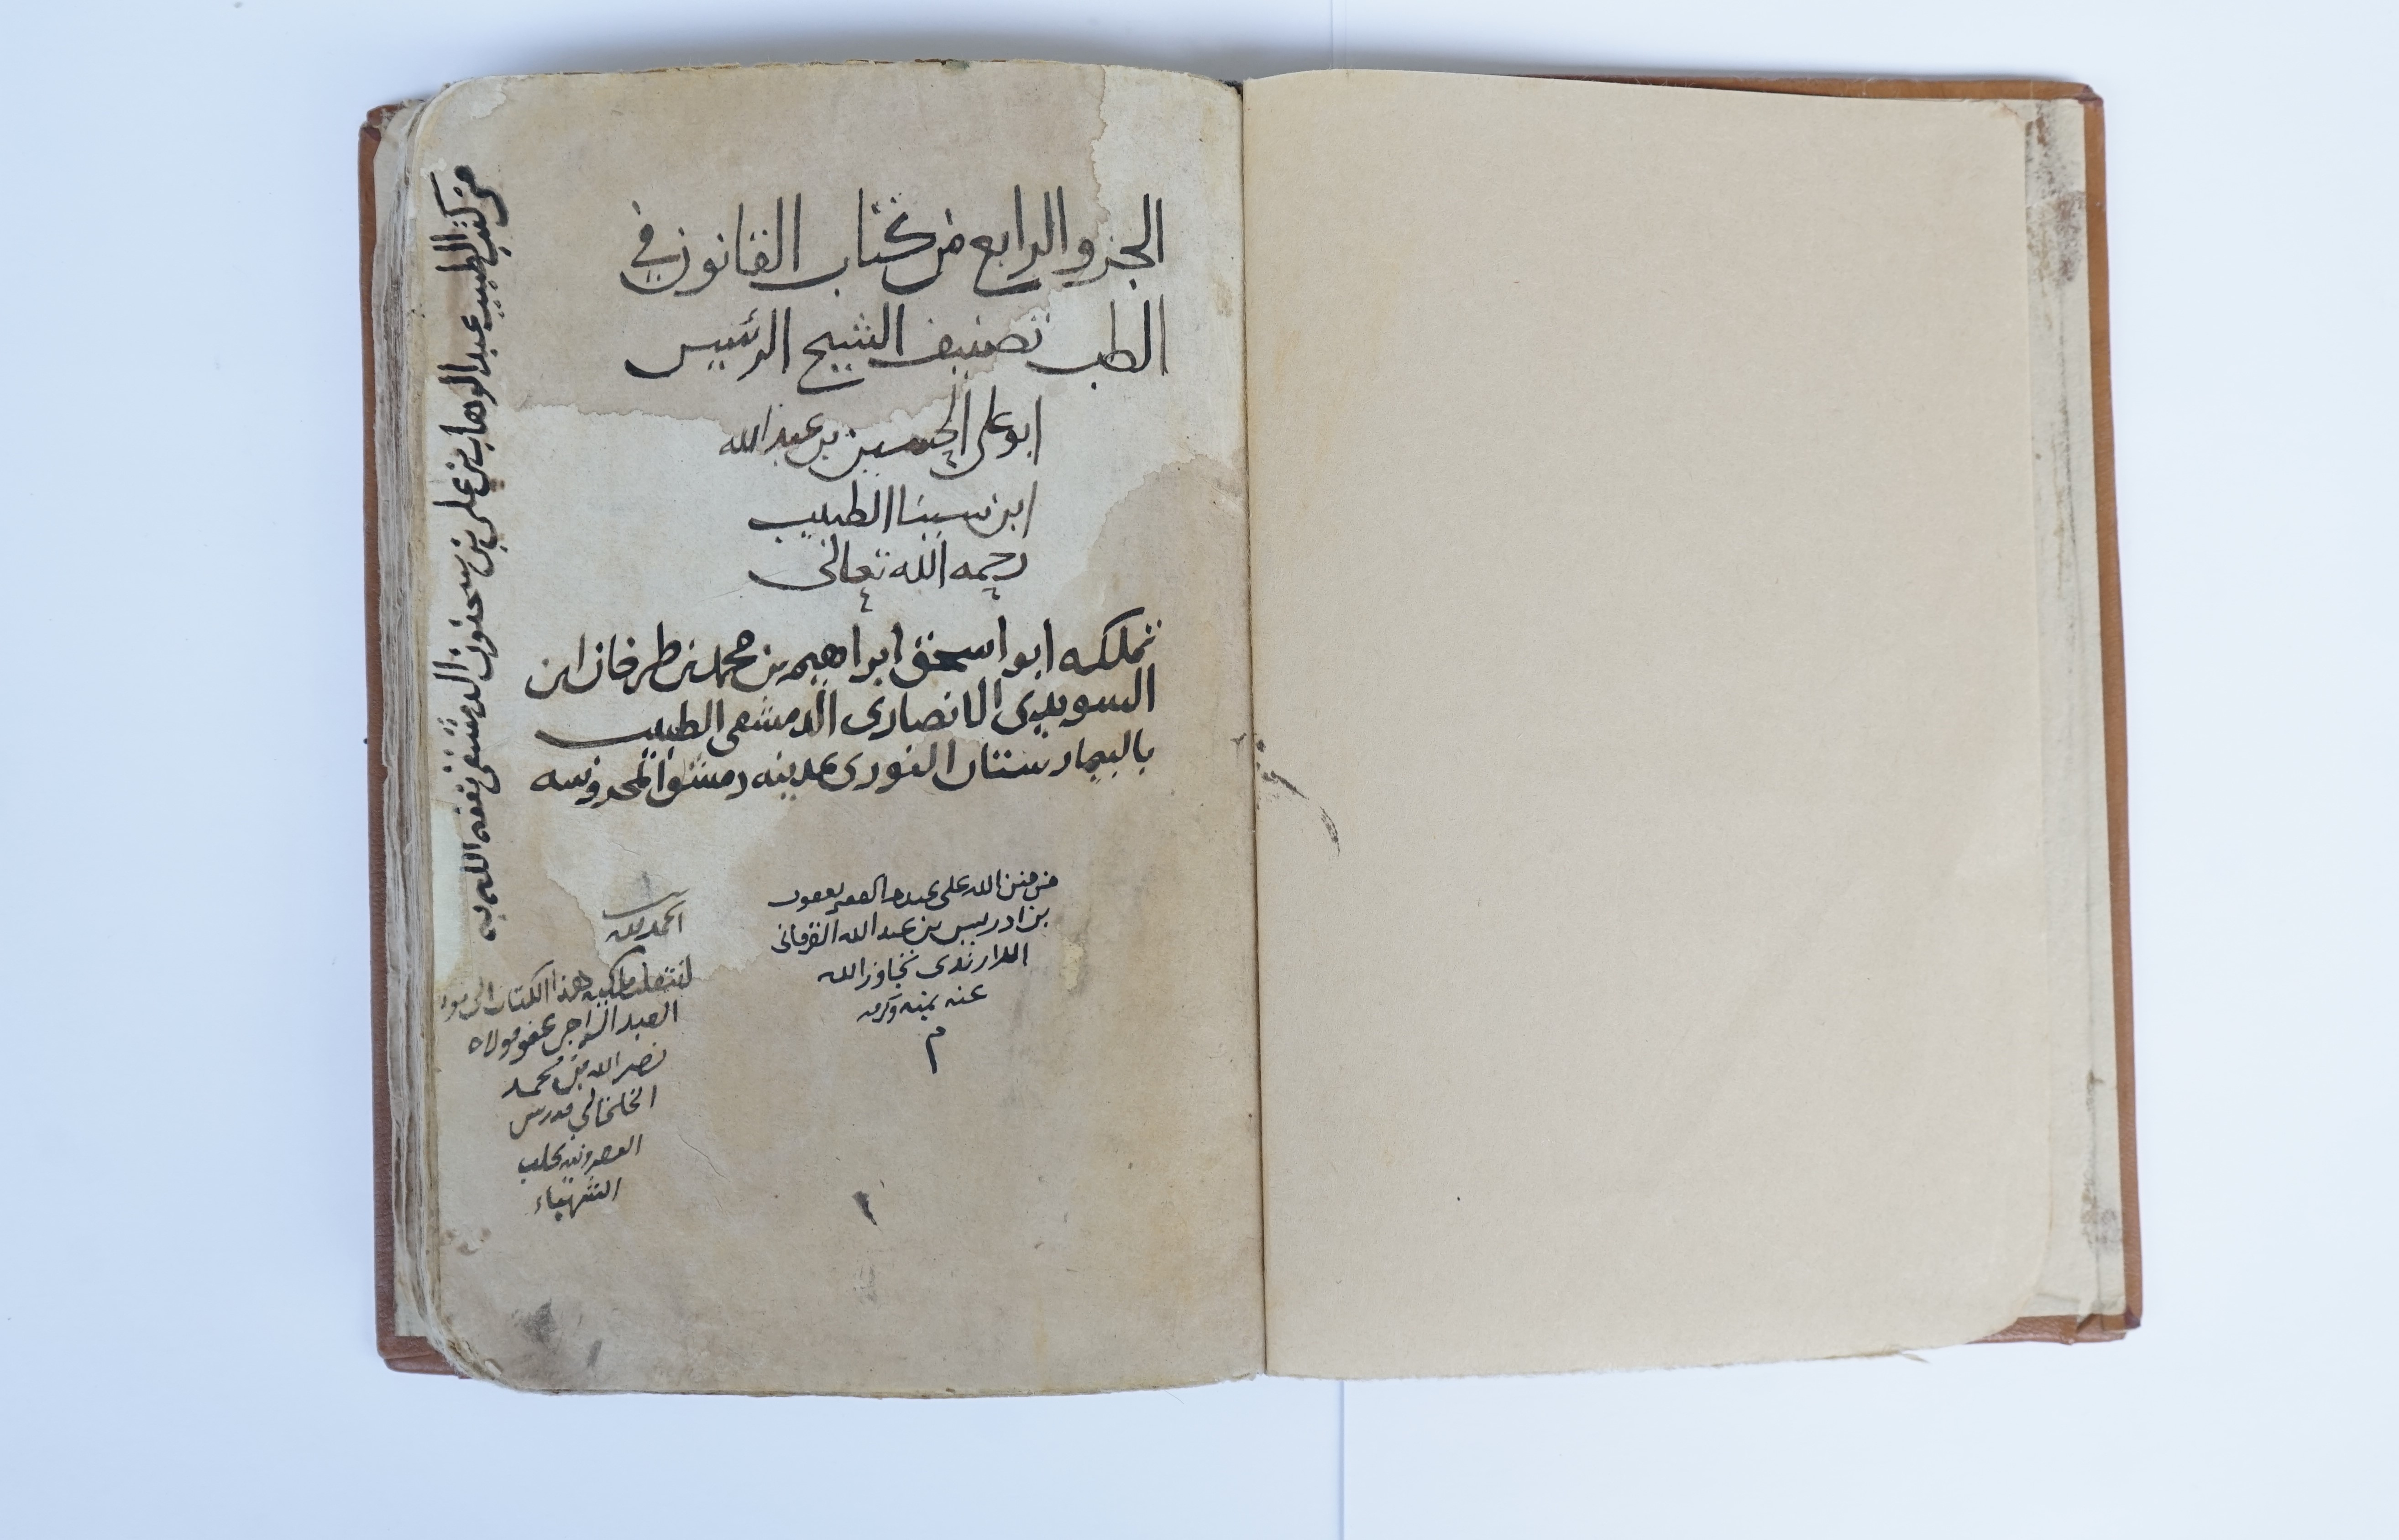 الجزو الرابع من كتاب القانون في
الطب تصنيف الشيخ الرئيس
ابو على الحسين بن عبد الله
ابن سينا الطبيب
رحمه الله تعالى
تملكه ابو اسحق ابراهيم بن محمد بن طرخان ابن
السويدى الانصارى الدمشقى الطبيب
بالبيمارستان النورى بمدينه دمشق المحروسه
من كتب الطبيب عبد الوهاب بن على بن سحنون الدمشقى نفعه الله به
من منن الله على عبده الفقير يعقوب
بن ادريس بن عبد الله القرمانى
اللارندى تجاوز الله
عنه بمنه وكرمه
م
الحمد لله
انتقل ملكيه هذا الكتاب الى
العبد الراجى عفو مولاه
نصر الله بن محمد
الخلخالي مدرس
العصرونيه بحلب
الشهباء